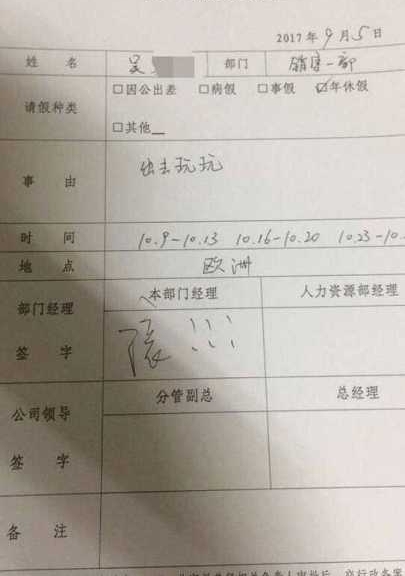 2017年9月5日
姓 名 吴 部门 销售一部
请假种类 □因公出差 □病假 □事假 ☑年休假
□其他
事 由 出去玩玩
时 间 10.9-10.13 10.16-10.20 10.23-10.
地 点 欧洲
部门经理 签 字 本部门经理 人力资源部经理
张
公司领导 签 字 分管副总 总经理
备 注